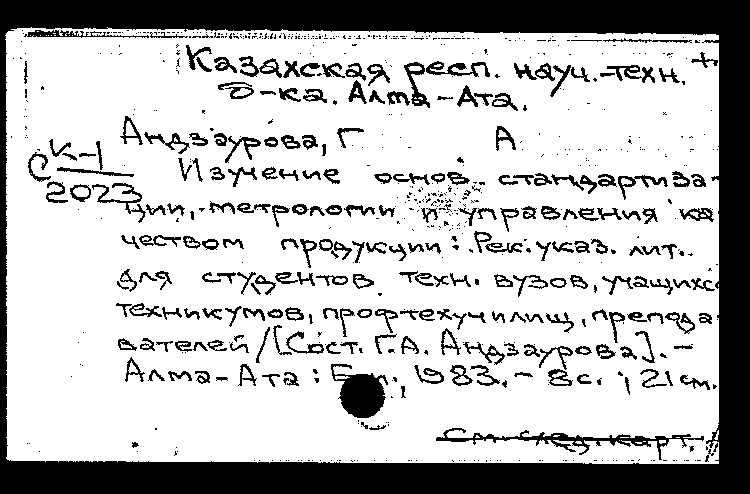 Казахская респ. науч.-техн. +
б-ка. Алма-Ата.
Андзаурова, Г А
С К-1
2023
Изучение основ стандартиза-
ции, метрологии и управления ка
чеством продукции: Рек. указ. лит.
для студентов техн. вузов, учащихс
техникумов, профтехучилищ, препода-
вателей/[Сост. Г.А. Андзаурова]. -
Алма-Ата : Б.и., 1983. - 8с. ; 21см.
См. след. карт.